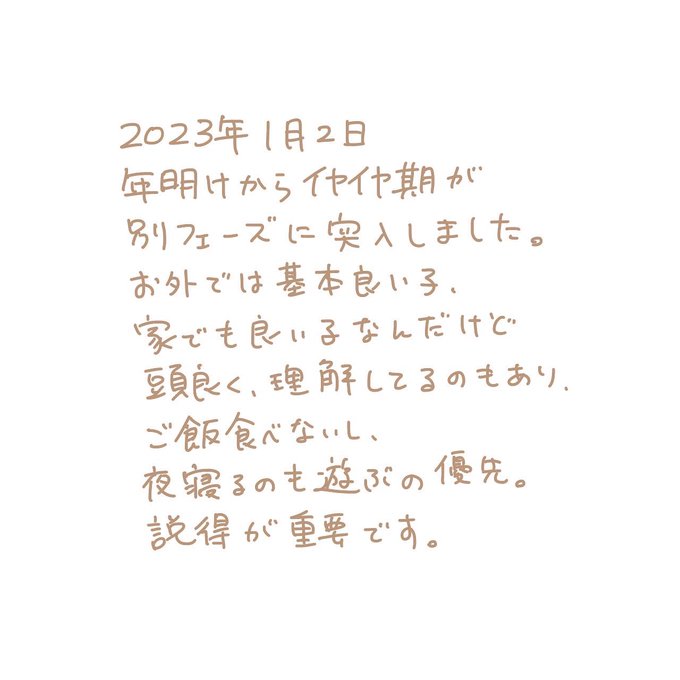 2023年1月2日
年明けからイヤイヤ期が
別フェーズに突入しました。
お外では基本良い子、
家でも良い子なんだけど
頭良く、理解してるのもあり、
ご飯食べないし、
夜寝るのも遊ぶの優先。
説得が重要です。